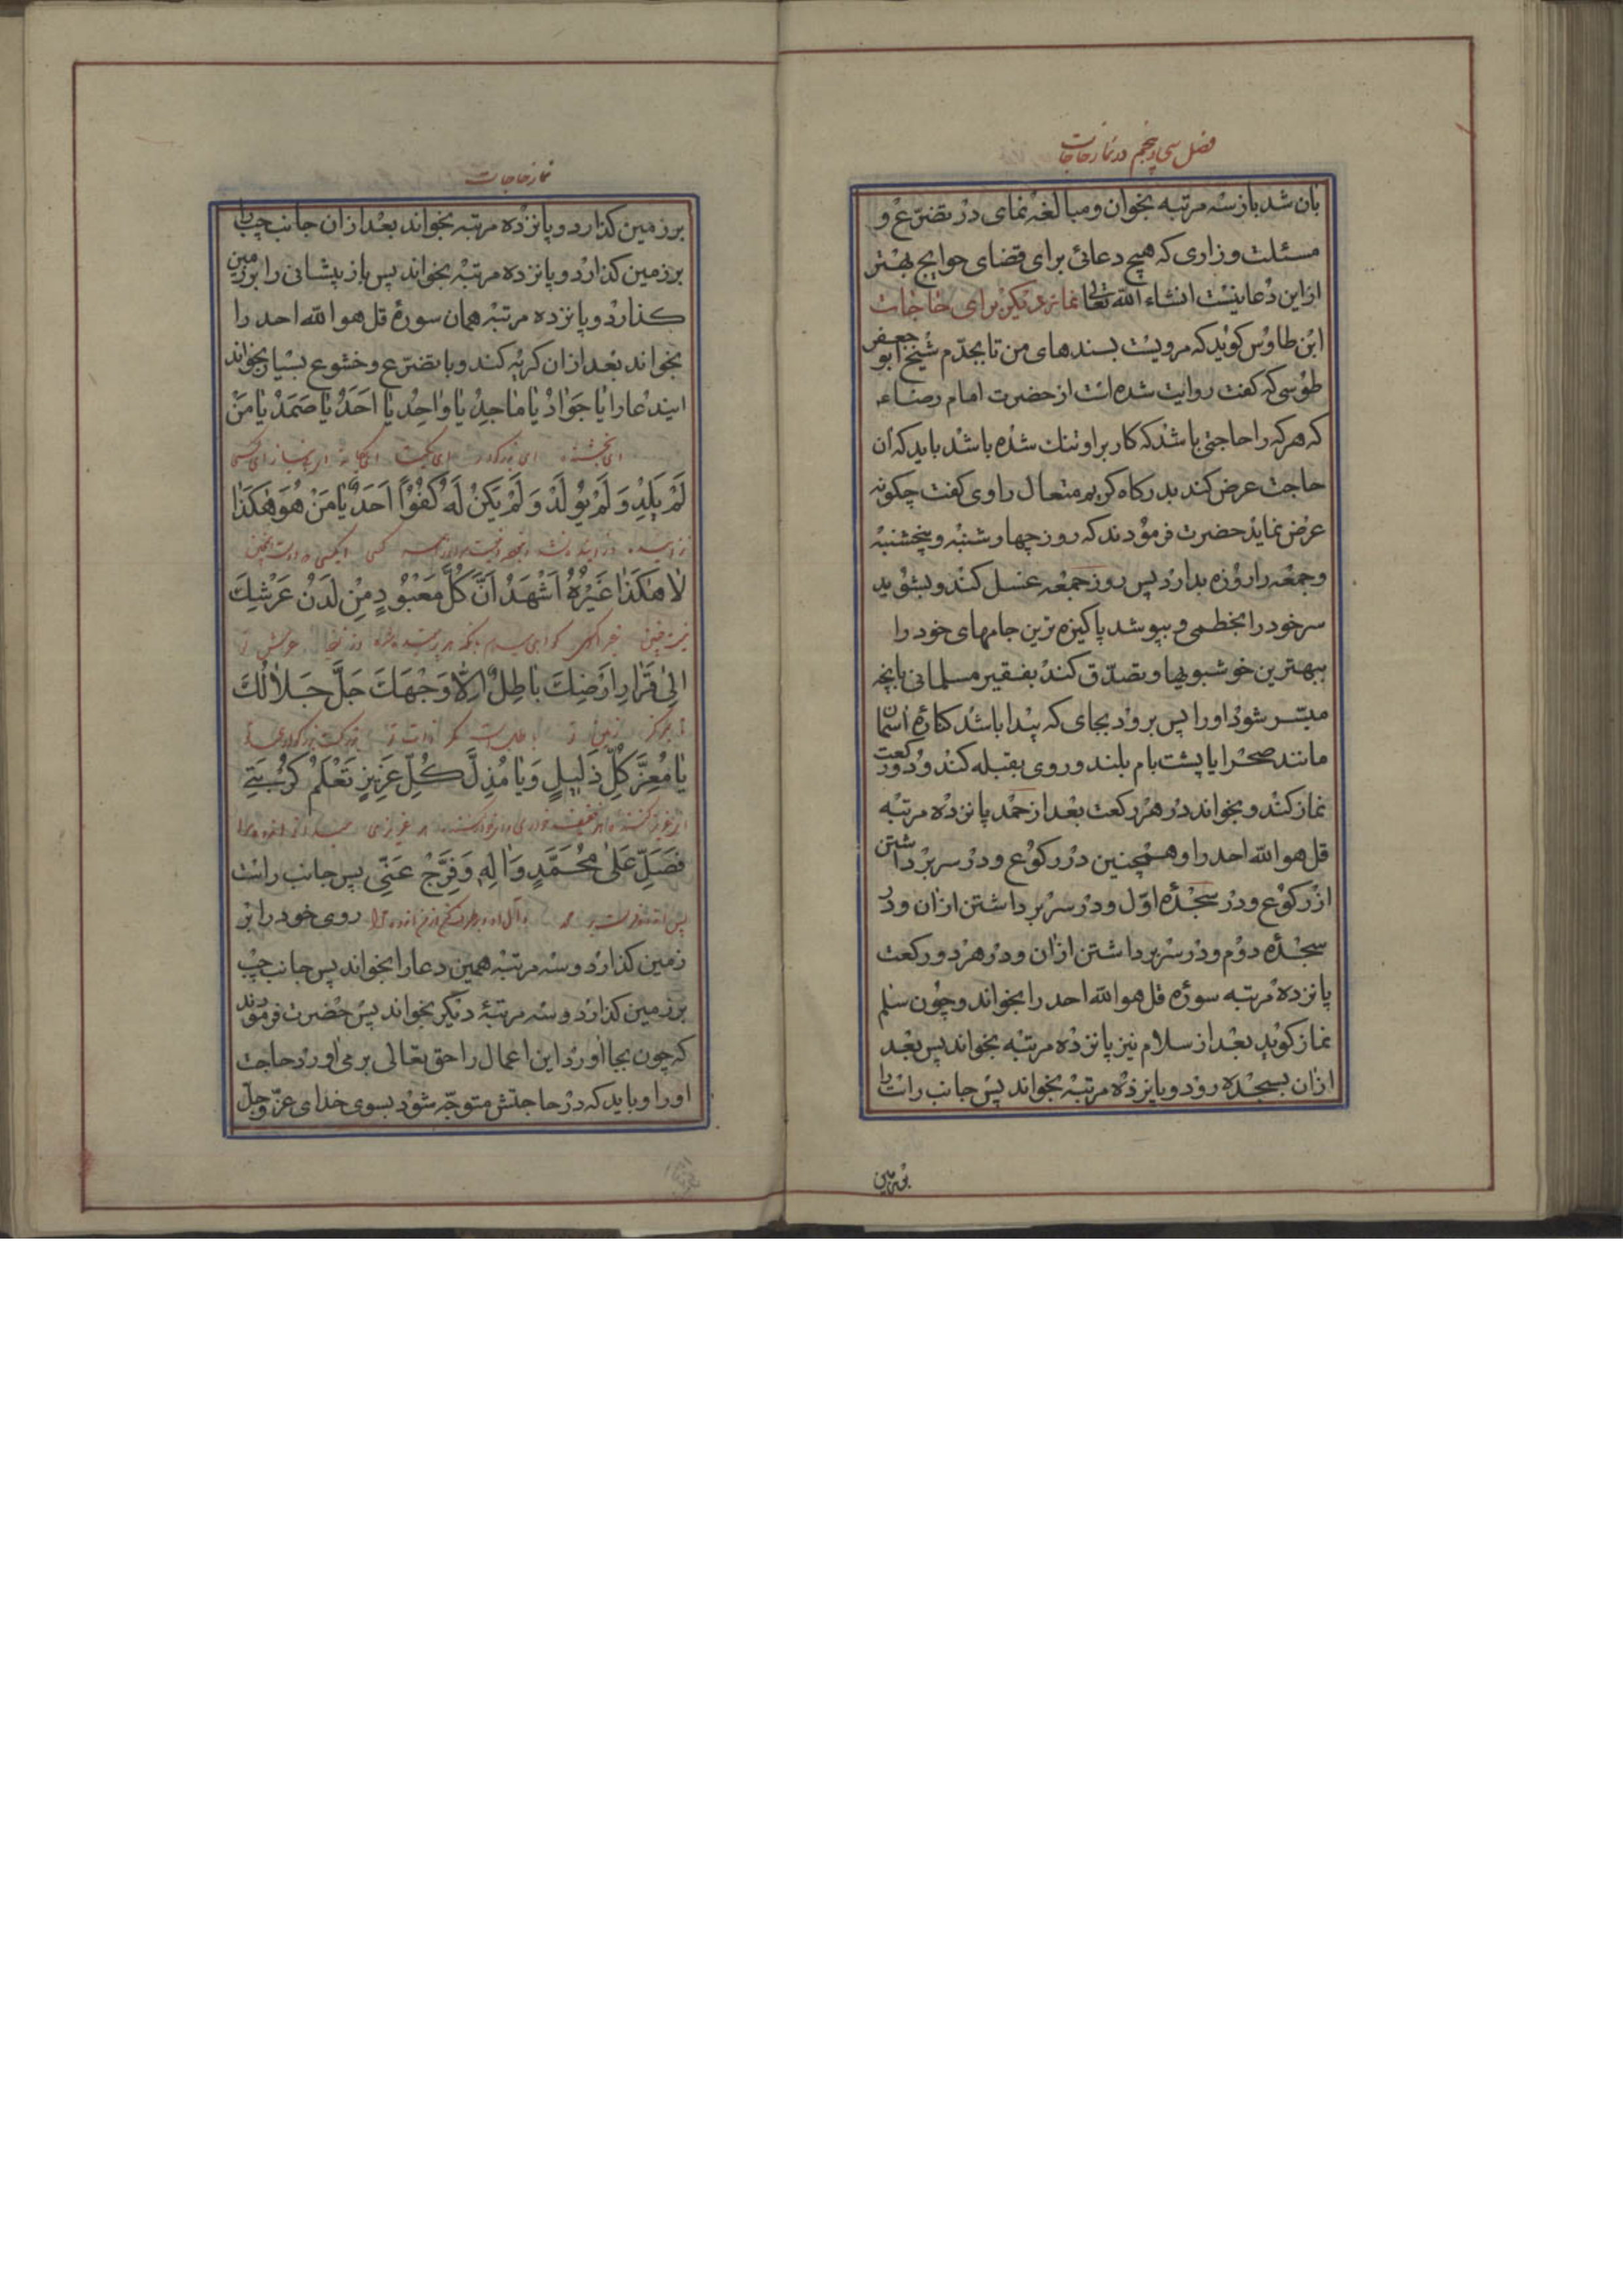 فصل سی و پنجم در نماز حاجات
بان شد باز سه مرتبه بخوان و مبالغه نمای در تضرّع و
مسئلت و زاری که هیچ دعائی برای قضای حوایج بهتر
از این دعا نیست انشاء الله تعالی نماز دیکر برای حاجات
ابن طاوس کوید که مرویست بسندهای من تا بجدّم شیخ ابو جعفر
طوسی که کفت روایت شده است از حضرت امام رضا ع
که هر که را حاجتی باشد که کار بر او تنك شده باشد باید که آن
حاجت عرض کند بدرکاه کریم متعال راوی کفت چکونه
عرض نماید حضرت فرمودند که روز چهارشنبه و پنجشنبه
و جمعه را روزه بدارد پس روز جمعه غسل کند و بشوید
سر خود را بخطمی و بپوشد پاکیزه ترین جامهای خود را
ببهترین خوشبویها و تصدّق کند بفقیر مسلمانی بانچه
میسّر شود او را پس برود بجای که پیدا باشد کنارۀ آسمان
مانند صحرا یا پشت بام بلند و روی بقبله کند و دو رکعت
نماز کند و بخواند در هر رکعت بعد از حمد پانزده مرتبه
قل هو الله احد را و همچنین در رکوع و در سر برداشتن
از رکوع و در سجدۀ اوّل و در سر برداشتن از آن و در
سجدۀ دوم و در سر برداشتن از آن و در هر دو رکعت
پانزده مرتبه سوره قل هو الله احد را بخواند و چون سلم
نماز کوید بعد از سلام نیز پانزده مرتبه بخواند پس بعد
از آن بسجده رود و پانزده مرتبه بخواند پس جانب راست را
بر زمین
نماز حاجات
بر زمین کذارد و پانزده مرتبه بخواند بعد از آن جانب چپ را
بر زمین کذارد و پانزده مرتبه بخواند پس باز پیشانی را بر زمین
کذارد و پانزده مرتبه همان سورۀ قل هو الله احد را
بخواند بعد از آن کریه کند و با تضرّع و خشوع بسیار بخواند
این دعا را یا جَوادُ یا ماجِدُ یا واحِدُ یا اَحَدُ یا صَمَدُ یا مَنْ
ای بخشنده ای
لَمْ یَلِدْ وَ لَمْ یُولَدْ وَ لَمْ یَکُنْ لَهُ کُفُواً اَحَدٌ یا مَنْ هُوَ هٰکَذا
لا هٰکَذا غَیْرُهُ اَشْهَدُ اَنَّ کُلَّ مَعْبُودٍ مِنْ لَدُنْ عَرْشِكَ
اِلی قَرارِ اَرْضِكَ باطِلٌ اِلّا وَجْهَكَ جَلَّ جَلالُكَ
یا مُعِزَّ کُلِّ ذَلیلٍ وَ یا مُذِلَّ کُلِّ عَزیزٍ تَعْلَمُ کُرْبَتی
فَصَلِّ عَلی مُحَمَّدٍ وَ الِهِ وَ فَرِّجْ عَنّی پس جانب راست
روی خود را بر
زمین کذارد و سه مرتبه همین دعا را بخواند پس جانب چپ
بر زمین کذارد و سه مرتبۀ دیکر بخواند پس حضرت فرمودند
که چون بجا آورد این اعمال را حق تعالی بر می آورد حاجت
او را و باید که در حاجتش متوجّه شود بسوی خدای عزّ و جلّ